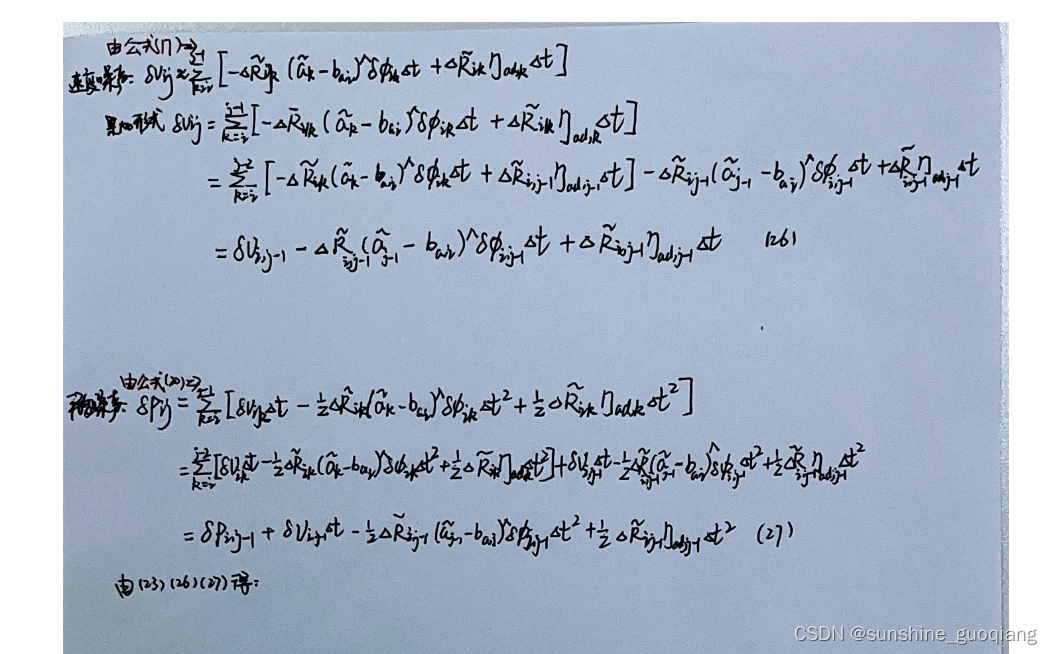 由公式(17)⇒
速度噪声: δVij ≈ Σ_{k=i}^{j-1} [-ΔR̃ik (ãk - ba,i)^δφikΔt + ΔR̃ik ηad,kΔt]
累加形式 δVij = Σ_{k=i}^{j-1} [-ΔR̃ik (ãk - ba,i)^δφikΔt + ΔR̃ik ηad,kΔt]
= Σ_{k=i}^{j-2} [-ΔR̃ik (ãk - ba,i)^δφikΔt + ΔR̃i,j-1 ηad,j-1Δt] - ΔR̃i,j-1 (ãj-1 - ba,i)^δφi,j-1Δt + ΔR̃i,j-1 ηad,j-1Δt
= δVi,j-1 - ΔR̃i,j-1 (ãj-1 - ba,i)^δφi,j-1Δt + ΔR̃i,j-1 ηad,j-1Δt (26)
由公式(20)⇒
噪声: δPij = Σ_{k=i}^{j-1} [δVikΔt - ½ΔR̃ik (ãk - ba,i)^δφikΔt² + ½ΔR̃ik ηad,kΔt²]
= Σ_{k=i}^{j-2} [δVikΔt - ½ΔR̃ik (ãk - ba,i)^δφikΔt² + ½ΔR̃ik ηad,kΔt²] + δVi,j-1Δt - ½ΔR̃i,j-1 (ãj-1 - ba,i)^δφi,j-1Δt² + ½ΔR̃i,j-1 ηad,j-1Δt²
= δPi,j-1 + δVi,j-1Δt - ½ΔR̃i,j-1 (ãj-1 - ba,i)^δφi,j-1Δt² + ½ΔR̃i,j-1 ηad,j-1Δt² (27)
由(23)(26)(27)得:
CSDN @sunshine_guoqiang